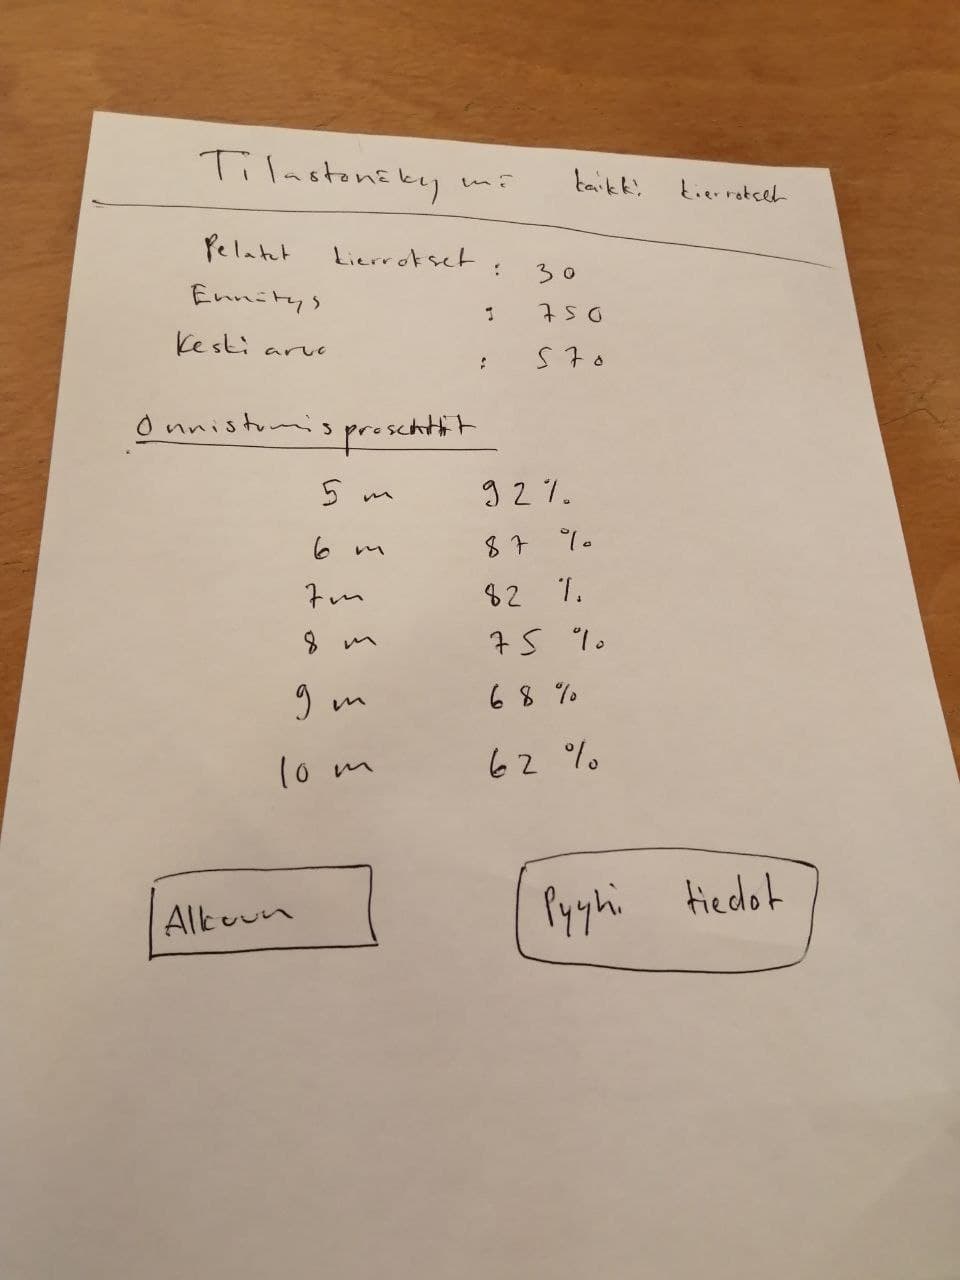 Tilastonäkymä kaikki kierrokset
Pelatut kierrokset : 30
Ennätys : 750
Keskiarvo : 570
Onnistumisprosentit
5 m 92 %
6 m 87 %
7 m 82 %
8 m 75 %
9 m 68 %
10 m 62 %
Alkuun
Pyyhi tiedot